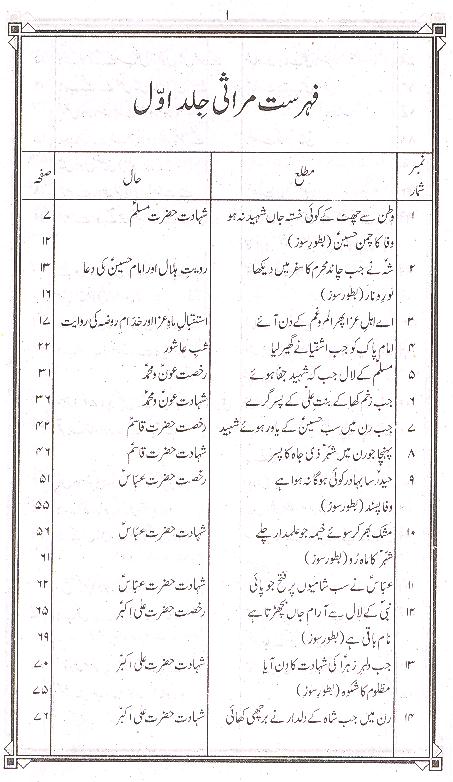 ۱
فہرست مراثی جلد اوّل
نمبر شمار مطلع حال صفحہ
۱ وطن سے چھٹ کے کوئی خستہ جاں شہید نہ ہو شہادت حضرت مسلمؑ ۷
وفا کا چمن حسینؑ (بطور سوز) ۱۲
۲ شہ نے جب چاند محرم کا سفر میں دیکھا رویتِ ہلال اور امام حسینؑ کی دعا ۱۳
نور و نار (بطور سوز) ۱۶
۳ اے اہلِ عزا پھر الم و غم کے دن آئے استقبالِ ماہِ عزا اور خدّام روضہ کی روایت ۱۷
۴ امامِ پاک کو جب اشقیا نے گھیر لیا شبِ عاشور ۲۲
۵ مسلمؑ کے لال جب کہ شہیدِ جفا ہوئے رخصت عونؑ و محمدؑ ۳۱
۶ جب زخم کھا کے بنتِ علیؑ کے پسر گرے شہادت عونؑ و محمدؑ ۳۶
۷ جب رن میں سب حسینؑ کے یاور ہوئے شہید رخصت حضرت قاسمؑ ۴۲
۸ پہنچا جو رن میں شبّرِ ذی جاہ کا پسر شہادت حضرت قاسمؑ ۴۶
۹ حیدرؑ سا بہادر کوئی ہوگا نہ ہوا ہے رخصت حضرت عباسؑ ۵۱
وفا پسند (بطور سوز) ۵۵
۱۰ مشک بھر کر سوئے خیمہ جو علمدار چلے شہادت حضرت عباسؑ ۵۶
شبّرؑ کا ماہ رُو (بطور سوز) ۶۱
۱۱ عباسؑ نے سب شامیوں پر فتح جو پائی شہادت حضرت عباسؑ ۶۲
۱۲ نبیؐ کے لال سے آرامِ جاں بچھڑتا ہے رخصت حضرت علی اکبرؑ ۶۵
نام باقی ہے (بطور سوز) ۶۹
۱۳ جب دلبرِ زہراؑ کی شہادت کا دن آیا شہادت حضرت علی اکبرؑ ۷۰
مظلوم کا شکوہ (بطور سوز) ۷۵
۱۴ رن میں جب شاہ کے دلدار نے برچھی کھائی شہادت حضرت علی اکبرؑ ۷۶